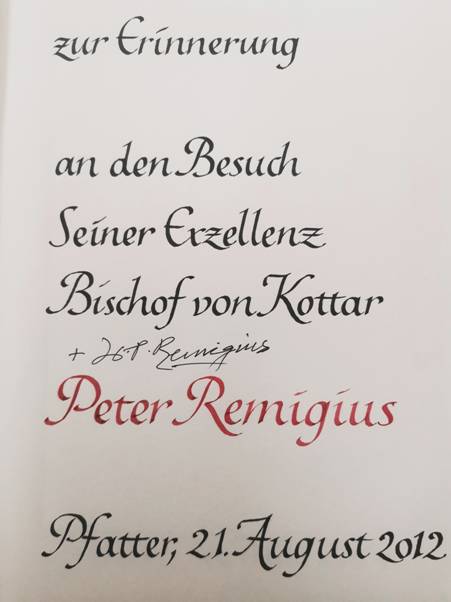 zur Erinnerung
an den Besuch
Seiner Exzellenz
Bischof von Kottar
Remigius
Peter Remigius
Pfatter, 21. August 2012